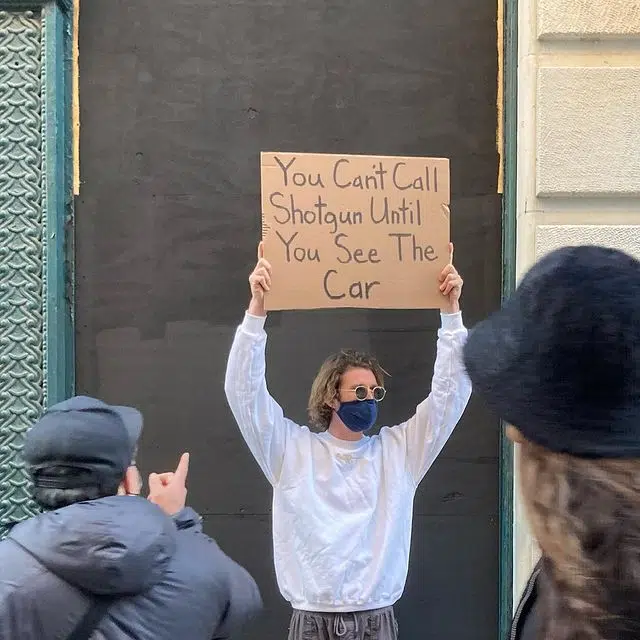 You Can't Call
Shotgun Until
You See The
Car